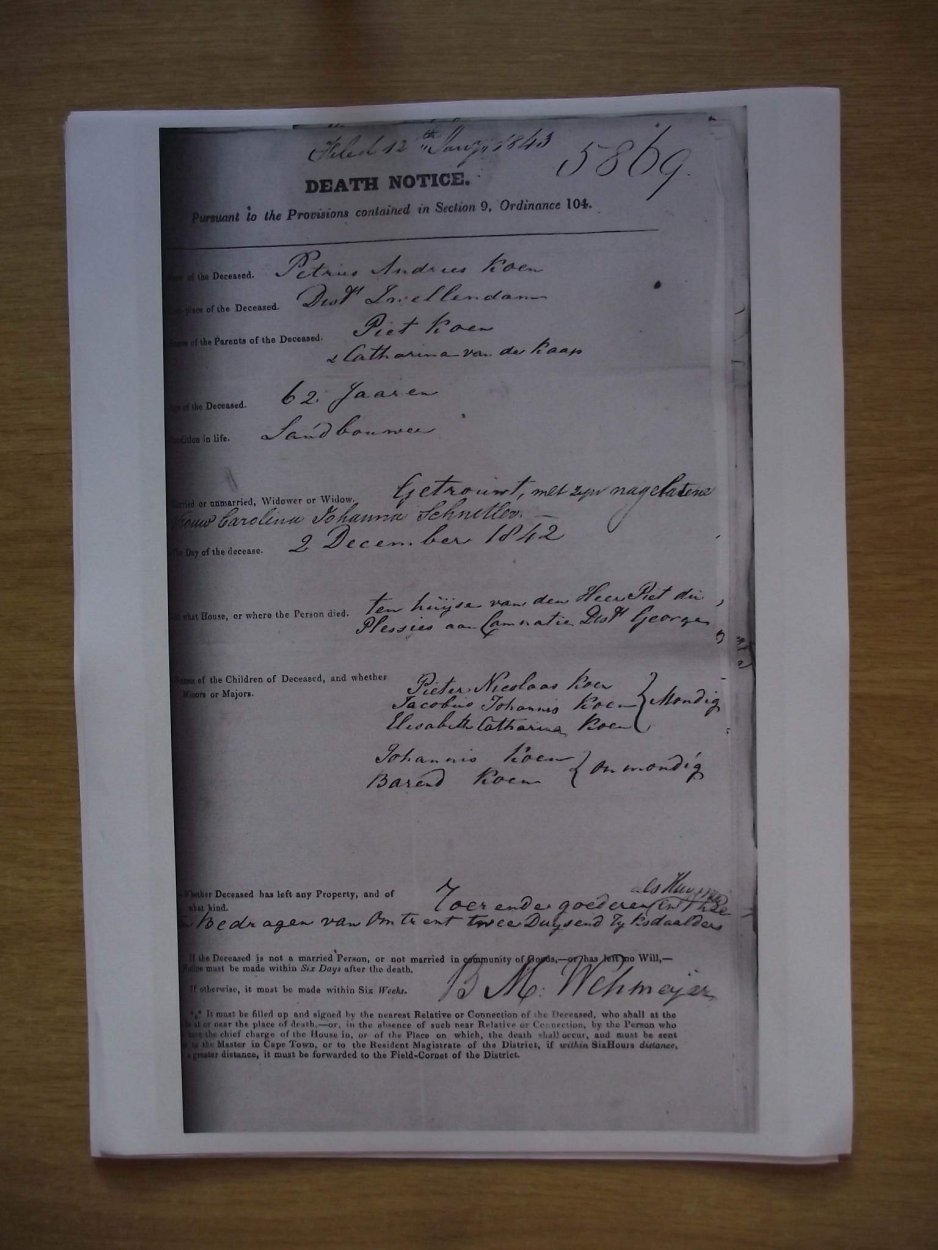 Filed 12th Jany 1843
5869.
DEATH NOTICE.
Pursuant to the Provisions contained in Section 9, Ordinance 104.
of the Deceased. Petrus Andries Koen
place of the Deceased. Distt Swellendam
of the Parents of the Deceased. Piet Koen
& Catharina van de Kaap
of the Deceased. 62 Jaaren
Condition in life. Landbouwer
Married or unmarried, Widower or Widow. Getrouwt, met zyn nagelatene
vrouw Carolina Johanna Schnetler. —
The Day of the decease. 2 December 1842
what House, or where the Person died. ten huijse van den Heer Piet du
Plessies aan Distt George
Names of the Children of Deceased, and whether
Minors or Majors.
Pieter Nicolaas Koen
Jacobus Johannis Koen } Mondig
Elisabeth Catharina Koen
Johannis Koen } onmondig
Barend Koen
Whether Deceased has left any Property, and of
what kind. goederen als
bedragen van omtrent twee Duysend Rysdaalders
If the Deceased is not a married Person, or not married in community of Goods,—or has left no Will,—
must be made within Six Days after the death.
If otherwise, it must be made within Six Weeks. B M: Wehmeijer
*** It must be filled up and signed by the nearest Relative or Connection of the Deceased, who shall at the
at or near the place of death,—or, in the absence of such near Relative or Connection, by the Person who
the chief charge of the House in, or of the Place on which, the death shall occur, and must be sent
to the Master in Cape Town, or to the Resident Magistrate of the District, if within Six Hours distance,
greater distance, it must be forwarded to the Field-Cornet of the District.